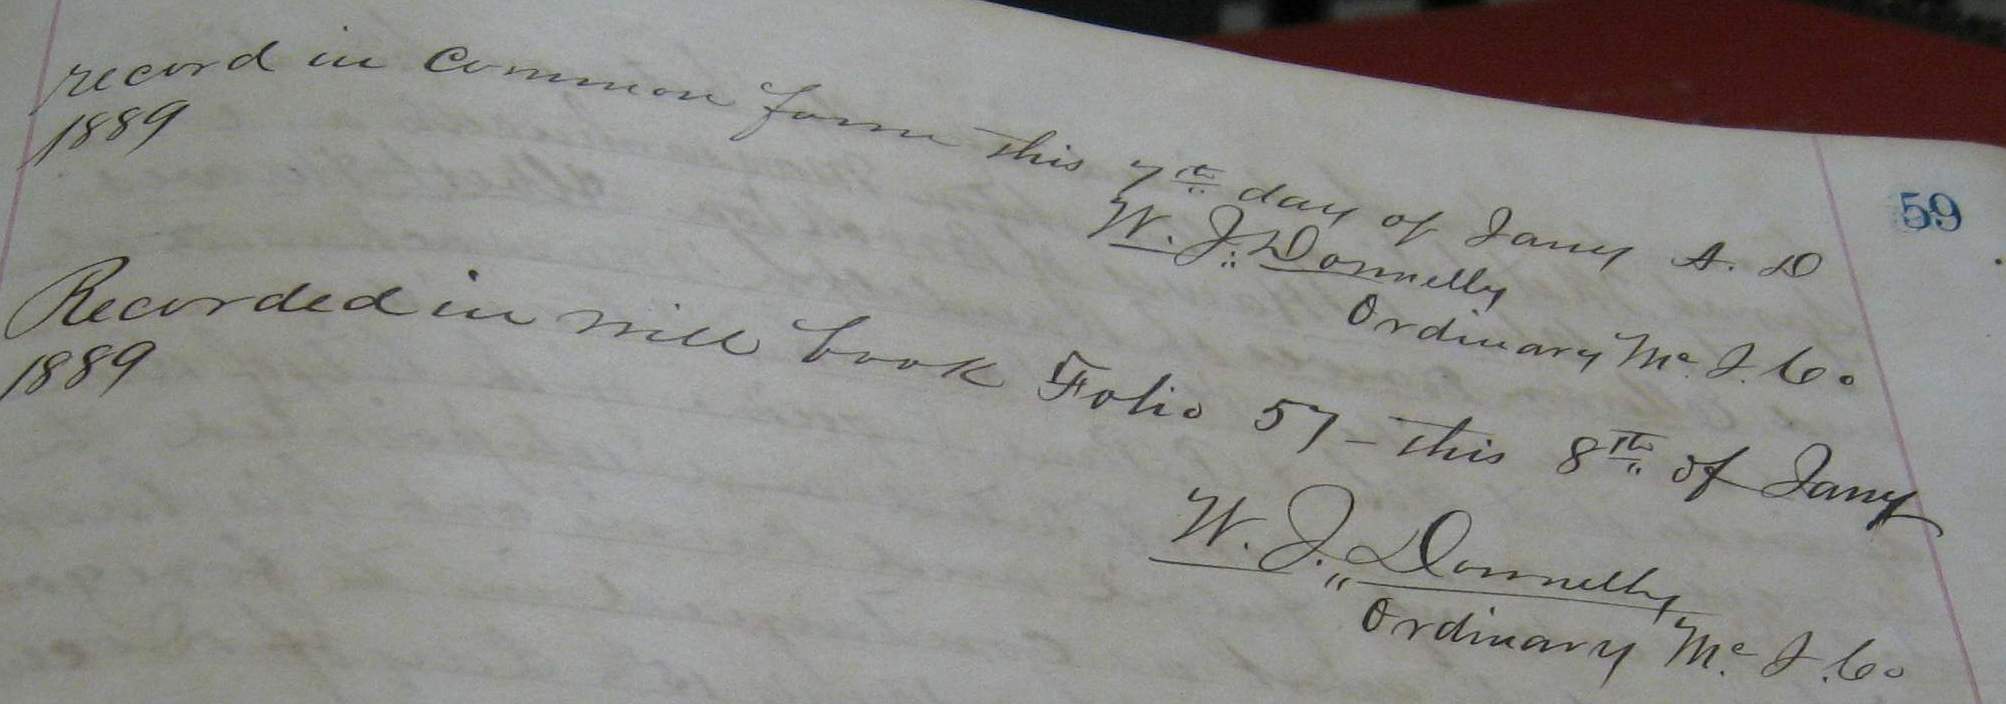 59
record in Common form this 7th day of Jany A. D
1889
W. J. Donnelly
Ordinary Mc. I. Co.
Recorded in will book Folio 57 - this 8th of Jany
1889
W. J. Donnelly
Ordinary Mc. I. Co.